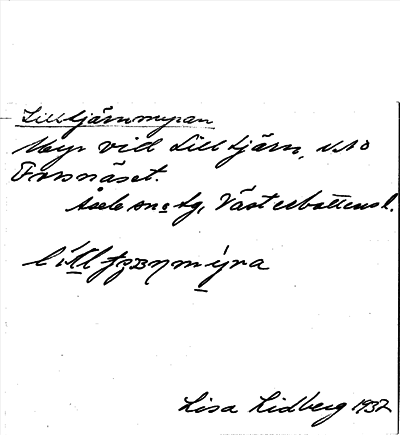 Lilltjärnmyran
Myr vid Lilltjärn, N.O
Forsnäset.
Åsele sn o tg, Västerbottens l.
Lisa Lidberg 1932